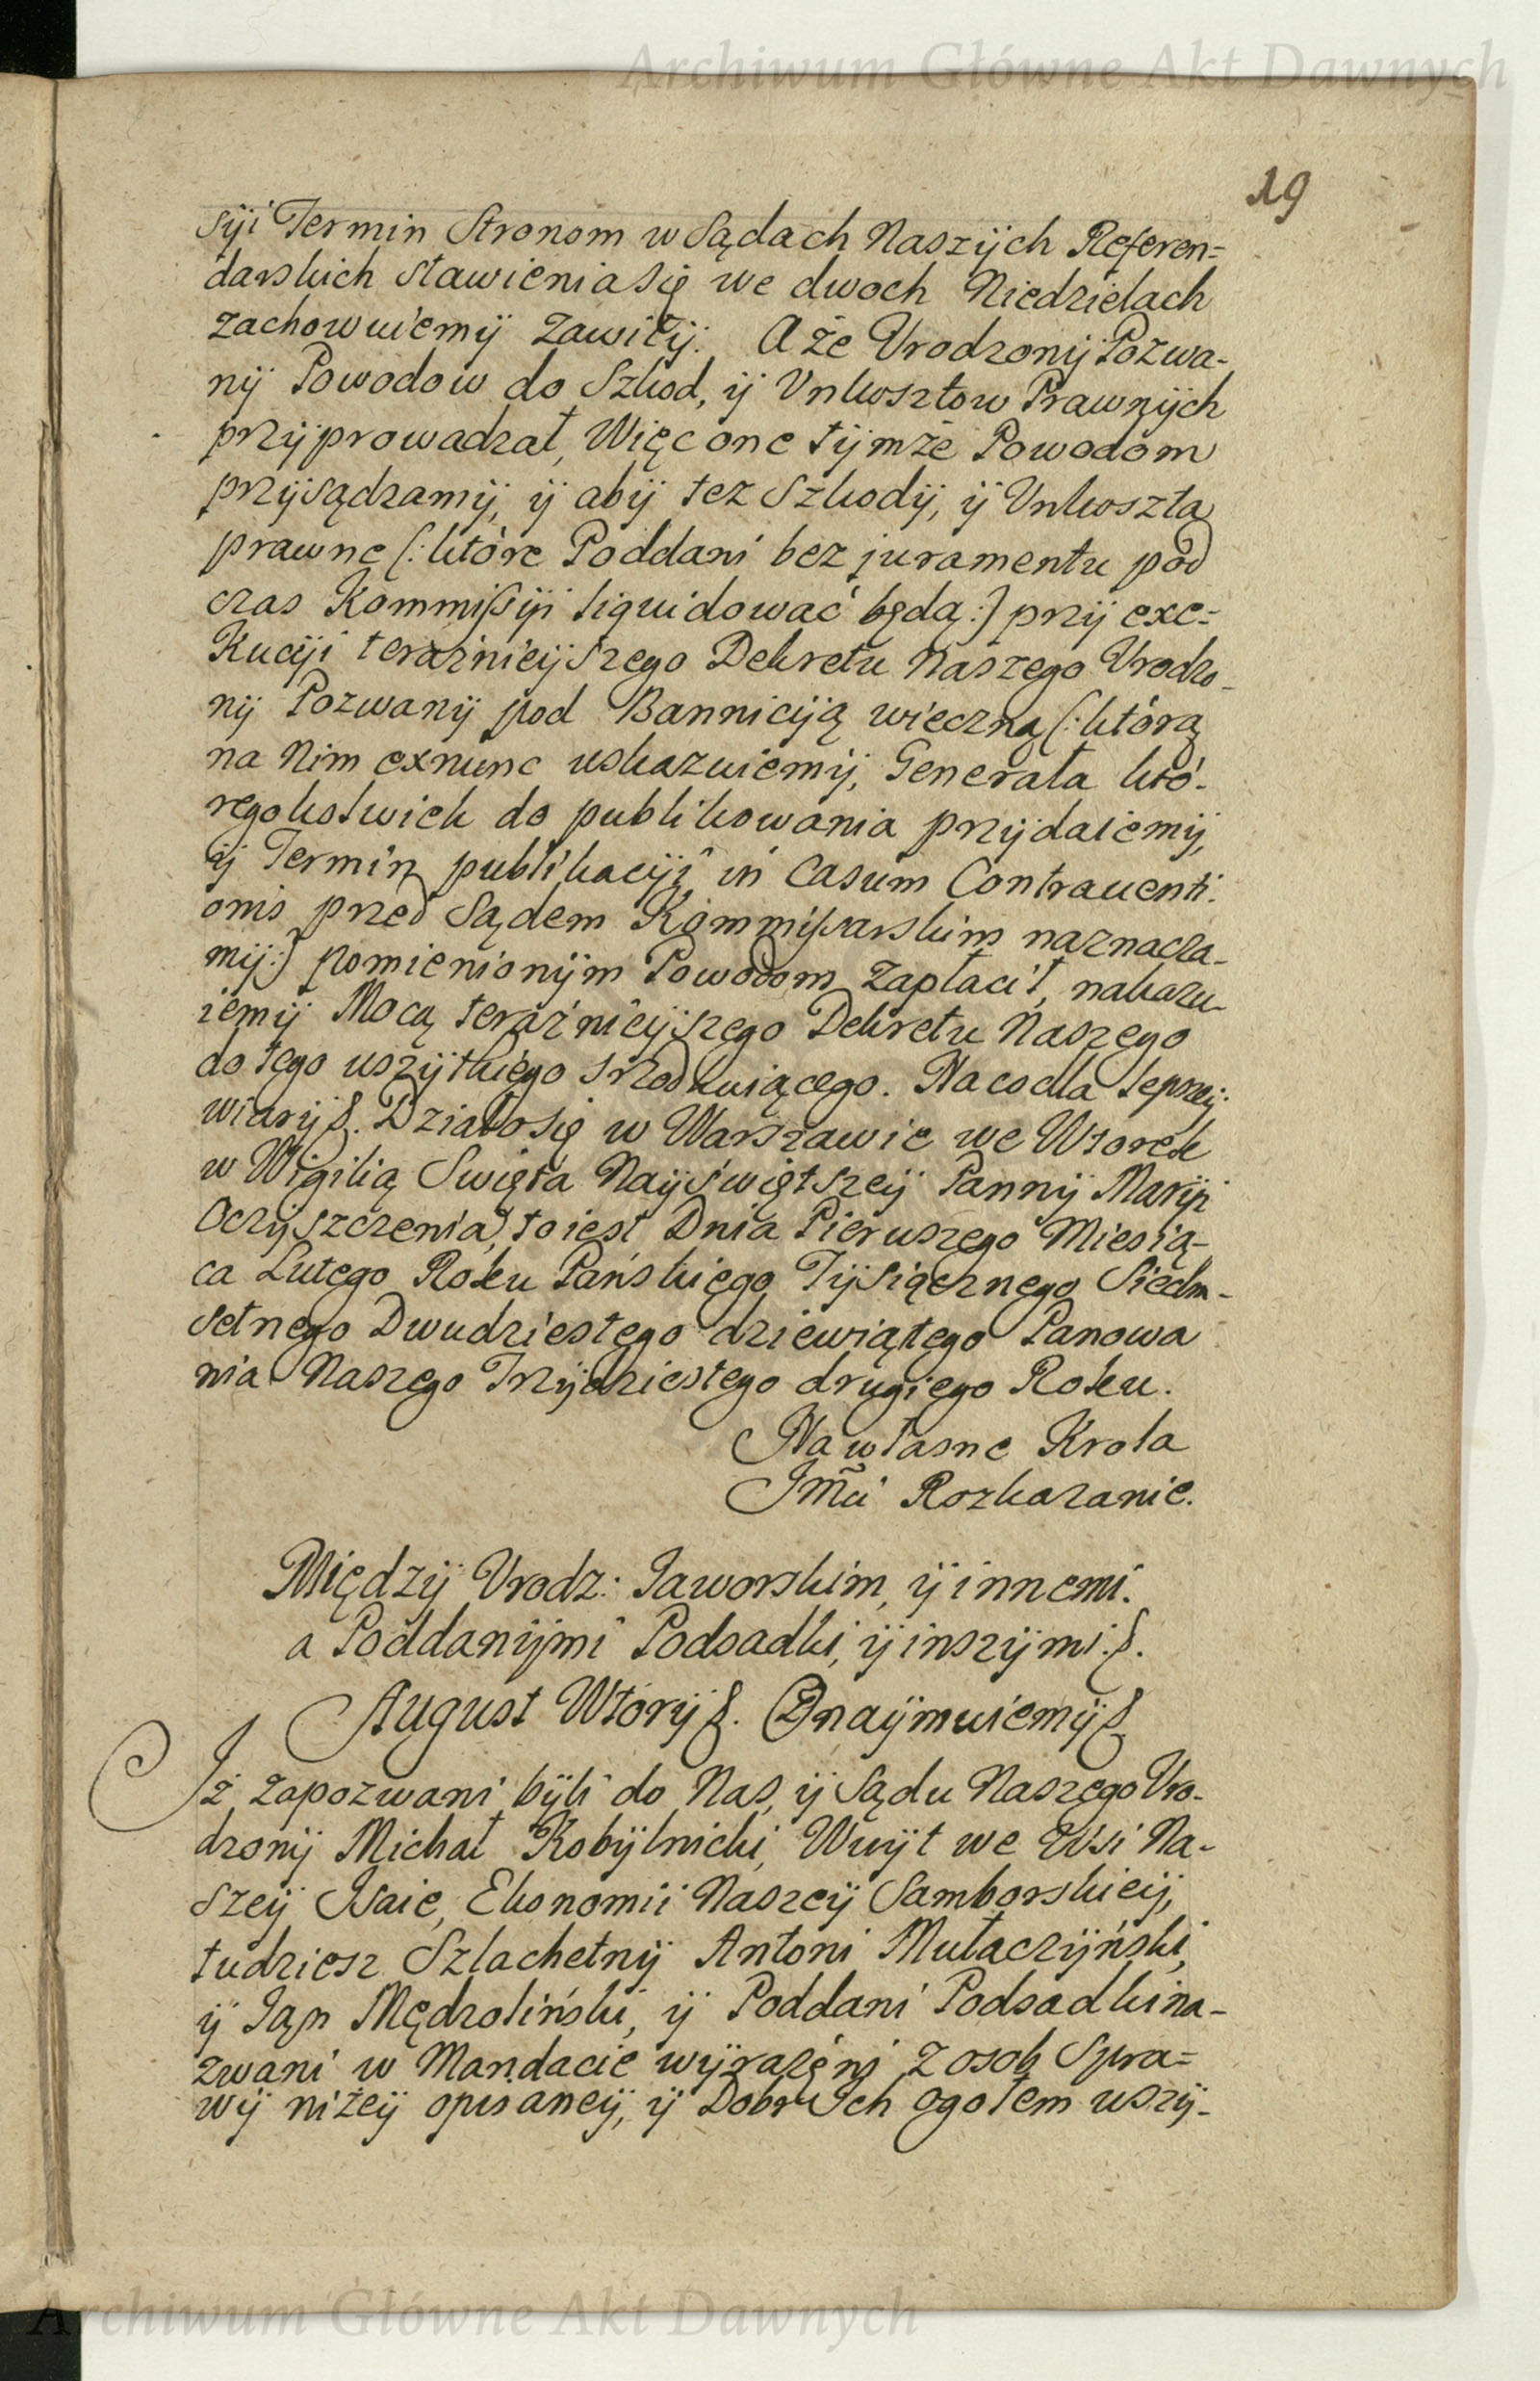 Archiwum Główne Akt Dawnych
19
syi Termin Stronom w Sądach Naszÿch Referen=
darskich stawienia się we dwoch Niedzielach
zachowuiemÿ zawitÿ. A że Vrodzonÿ Pozwa-
nÿ Powodow do Szkod, ÿ Vnkosztow Prawnÿch
przÿprowadzał, Więc one tÿmże Powodom
przÿsądzamÿ, ÿ abÿ tez Szkodÿ, ÿ Vnkoszta
prawne (: które Poddani bez juramentu pod
czas Kommißÿi liquidować będą :) przÿ exe=
Kucÿi teraznieÿszego Dekretu Naszego Vrodzo-
nÿ Pozwanÿ pod Bannicÿą wieczną (: którą
na Nim exnunc wskazuiemÿ, Generała któ-
regokolwiek do publikowania przÿdaiemÿ,
ÿ Termin publikacÿi in Casum Contrauenti-
onis przed Sądem Kommißarskim naznacza-
mÿ :) pomienionÿm Powodom zapłacił, nakazu-
iemÿ Mocą teraźnieÿszego Dekretu Naszego
do tego wszÿtkiego srzodkuiącego. Na co dla lepszeÿ
wiarÿ &. Działo się w Warszawie we Wtorek
w Wigilią Swięta Naÿświętszeÿ Pannÿ Marÿi
Oczÿszczenia, to iest Dnia Pierwszego Miesią-
ca Lutego Roku Pańskiego Tÿsiącznego Siedm-
setnego Dwudziestego dziewiątego Panowa
nia Naszego Trzÿdziestego drugiego Roku.
Na własne Krola
Jm̃ći Rozkazanie.
Międzÿ Vrodz: Jaworskim, ÿ innemi.
a Poddanÿmi Podsadki, ÿ inszÿmi. &.
August Wtórÿ &. Oznaÿmuiemÿ &
Jż zapozwani bÿli do Nas, ÿ Sądu Naszego Vro-
dzonÿ Michał Kobÿlnicki, Wuÿt we Wsi Na-
szeÿ Isaie, Ekonomii Naszeÿ Samborskieÿ,
tudziesz Szlachetnÿ Antoni Mułaczÿński,
ÿ Jan Mędroliński, ÿ Poddani Podsadki na-
zwani w Mandacie wÿrażeni z osob Spra=
wÿ niżeÿ opisaneÿ, ÿ Dobr Ich ogołem wszÿ-
Archiwum Główne Akt Dawnych